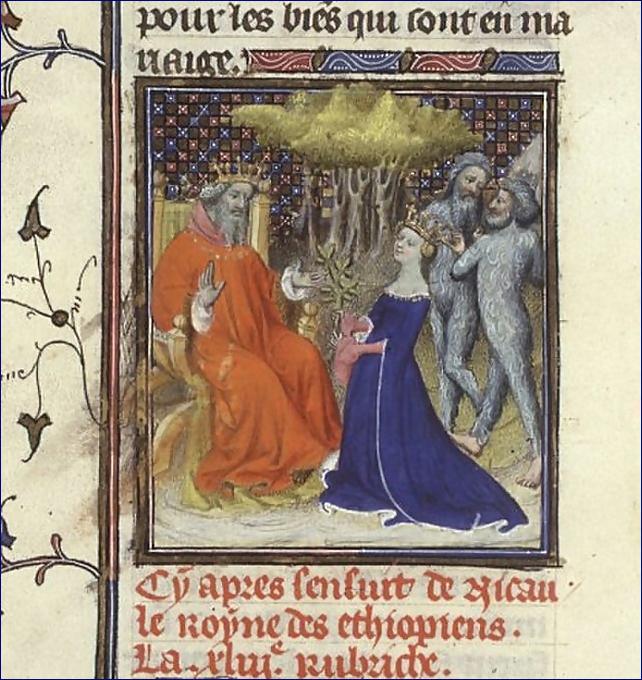 pour les biẽs qui sont en ma
riaige.
Cy apres sensuit de Nicau
le royne des ethiopiens.
La .xliiie. Rubriche.